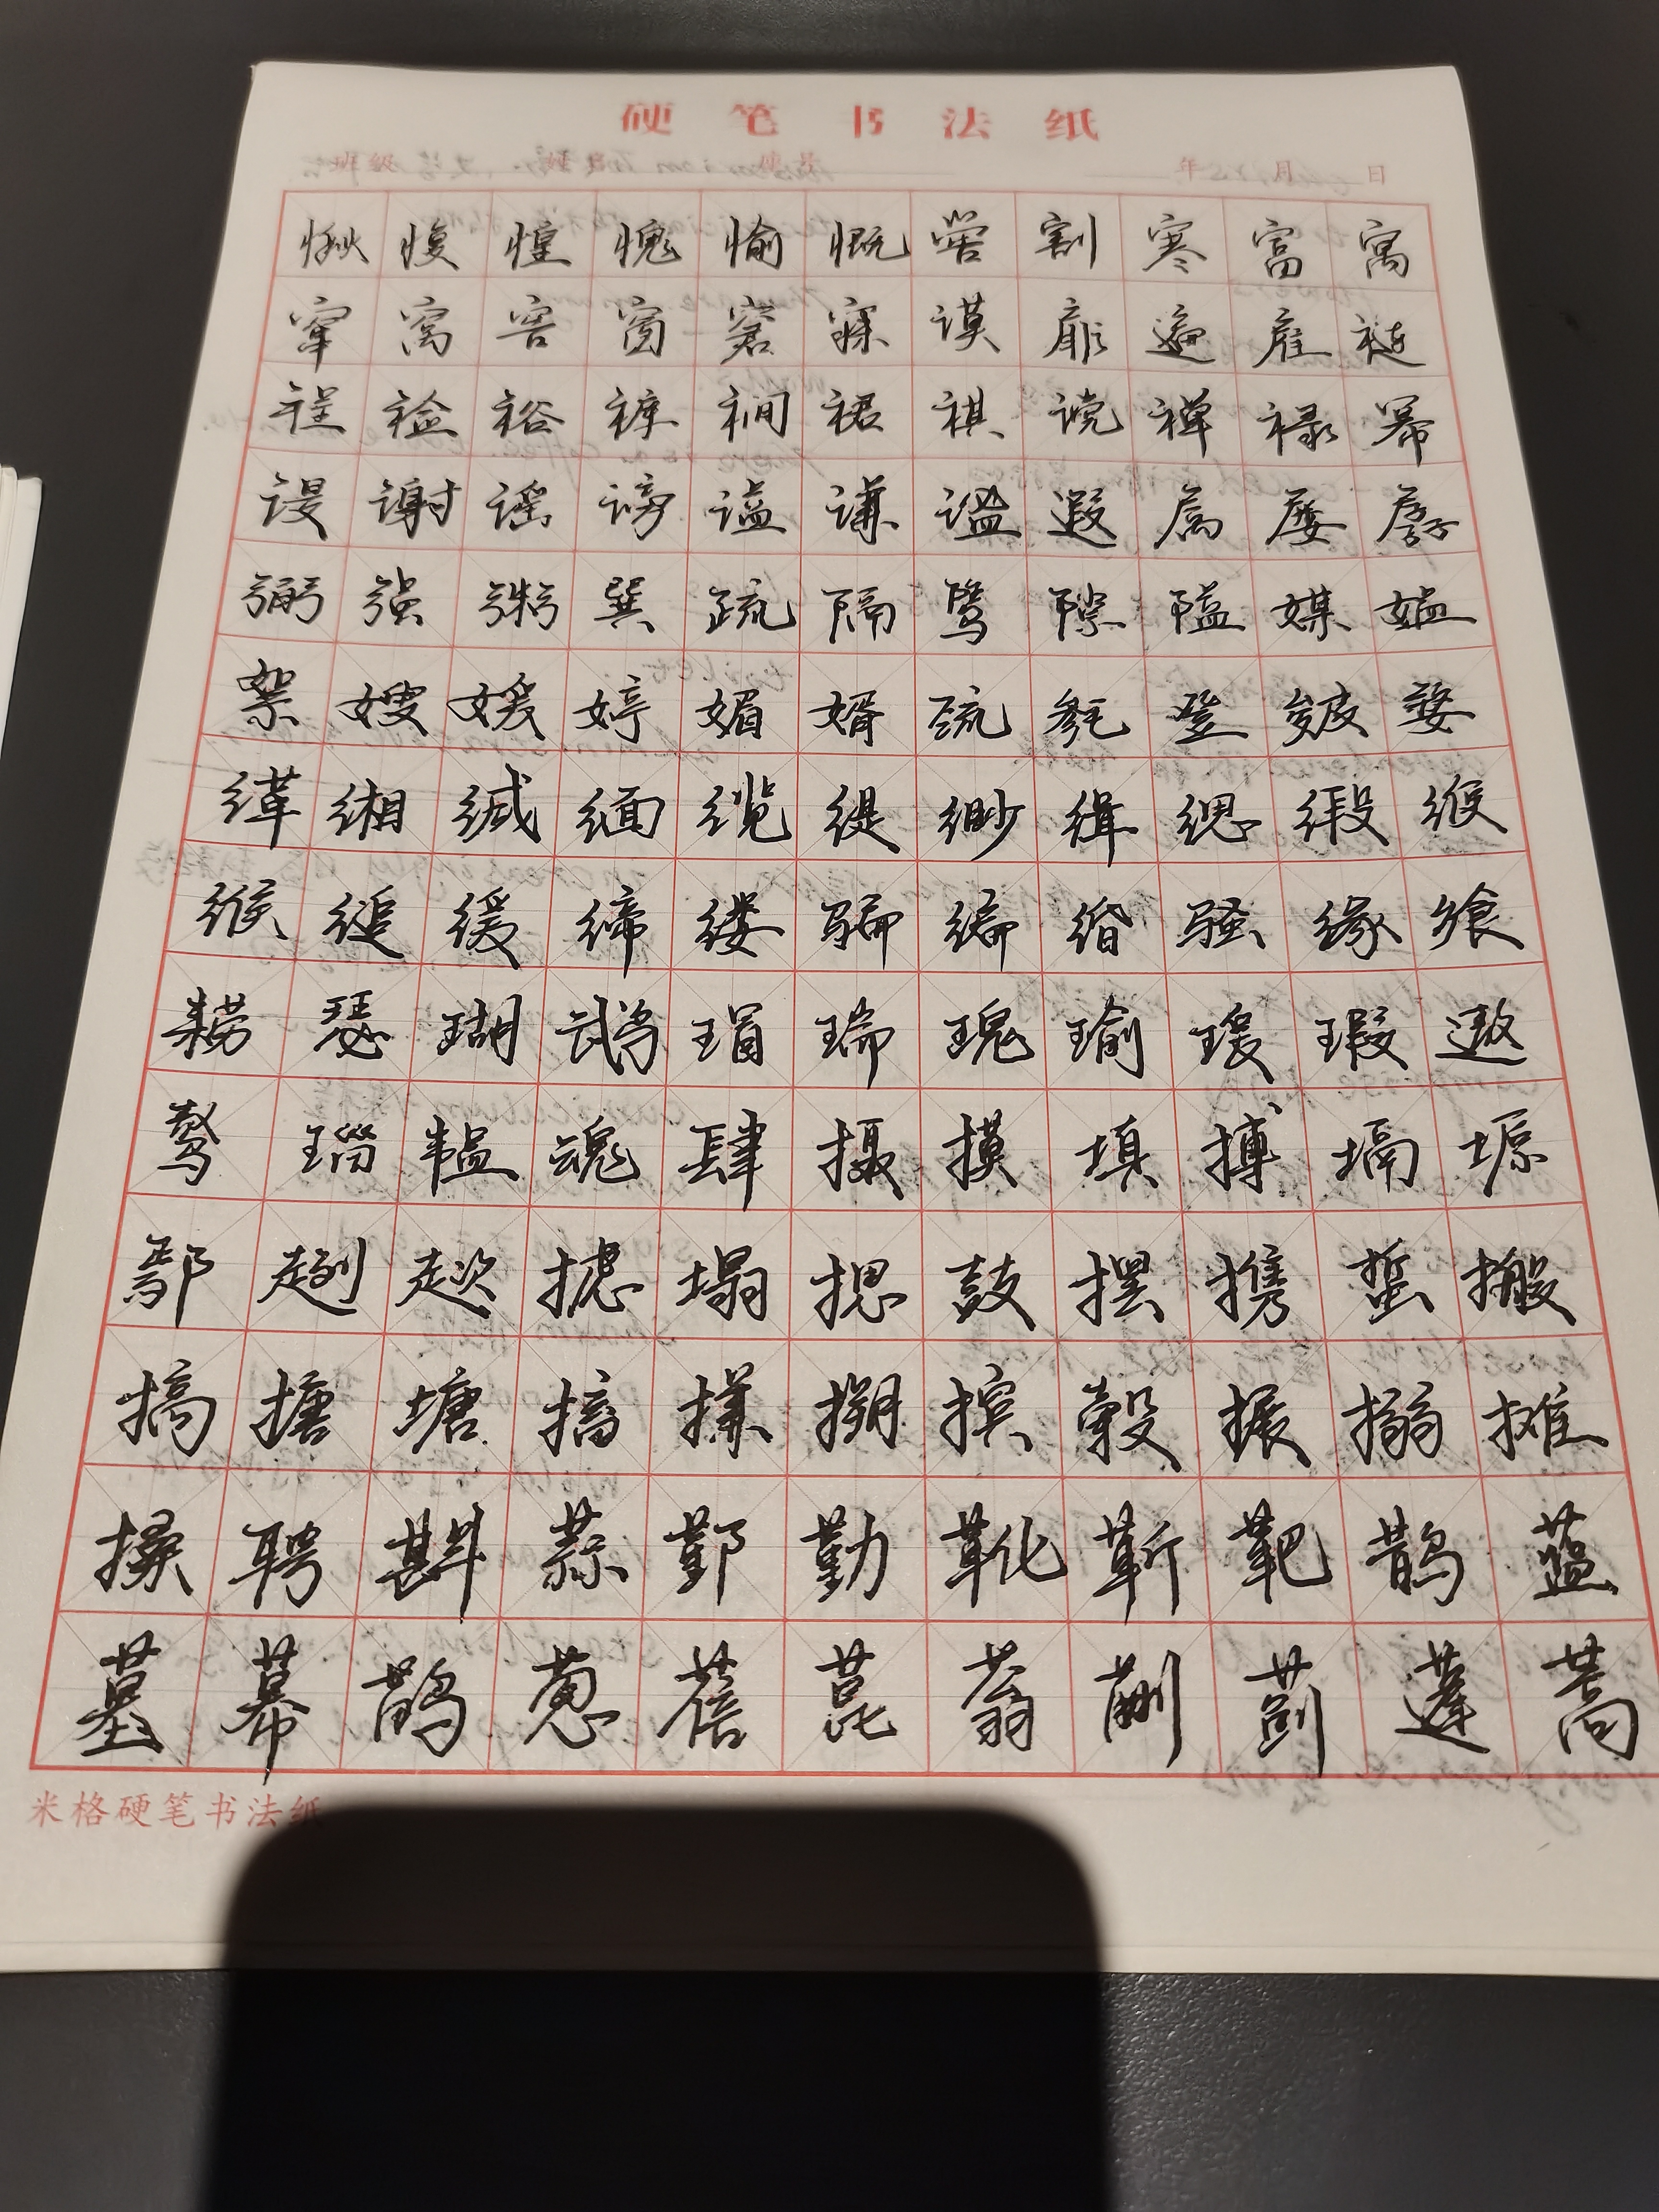 硬笔书法纸
班级 姓名 年 月 日
愀愎惶愧愉慨喾割寒富寓
窜窝窖窗窘寐谟扉遍雇裢
裎裣裕裤裥裙祺谠禅禄幂
谡谢谣谤谥谦谧遐属屡孱
弼强粥巽疏隔骘隙隘媒媪
絮嫂媛婷媚婿巯毵登皴婺
缂缃缄缅缆缇缈缉缌缎缑
缑缒缓缔缕骗编缗骚缘飨
耢瑟瑚鹉瑁瑞瑰瑜瑗瑕遨
骜瑙韫魂肆摄摸填搏塥塬
鄢趔趑摅塌摁鼓摆携蜇搬
搞搪塘搒搛搠摈彀搌搦摊
搡聘斟蒜鄞勤靴靳靶鹊蕰
墓幕鹋葱蓓蓖蓊蒯蓟蓬蒿
米格硬笔书法纸